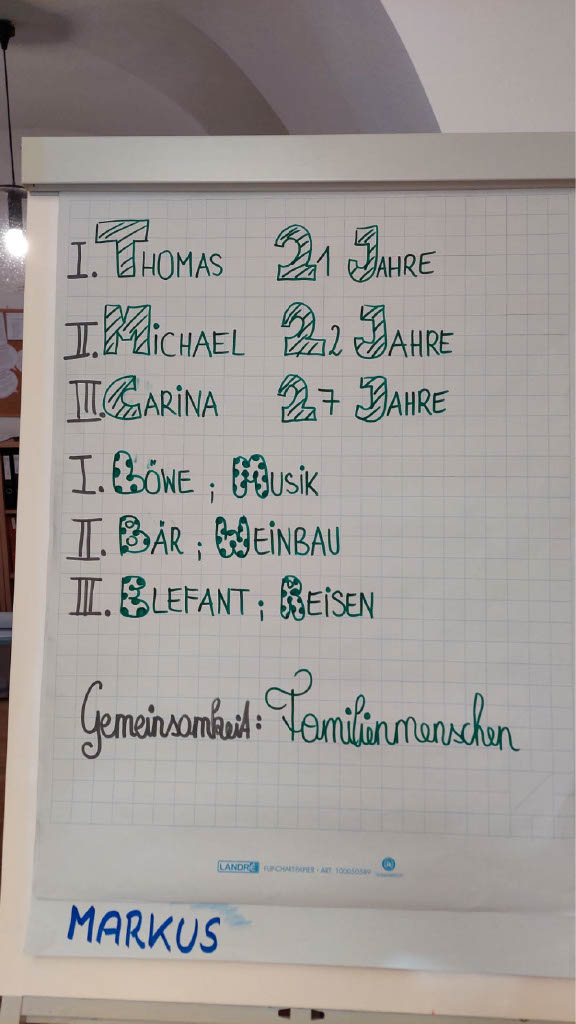 I. THOMAS 21 JAHRE
II. MiCHAEL 22 JAHRE
III. CARiNA 27 JAHRE
I. LÖWE ; MUSiK
II. BÄR ; WEiNBAU
III. ELEFANT ; REiSEN
Gemeinsamkeit: Familienmenschen
LANDRÉ FLIPCHARTPAPIER · ART. 100050589
MARKUS